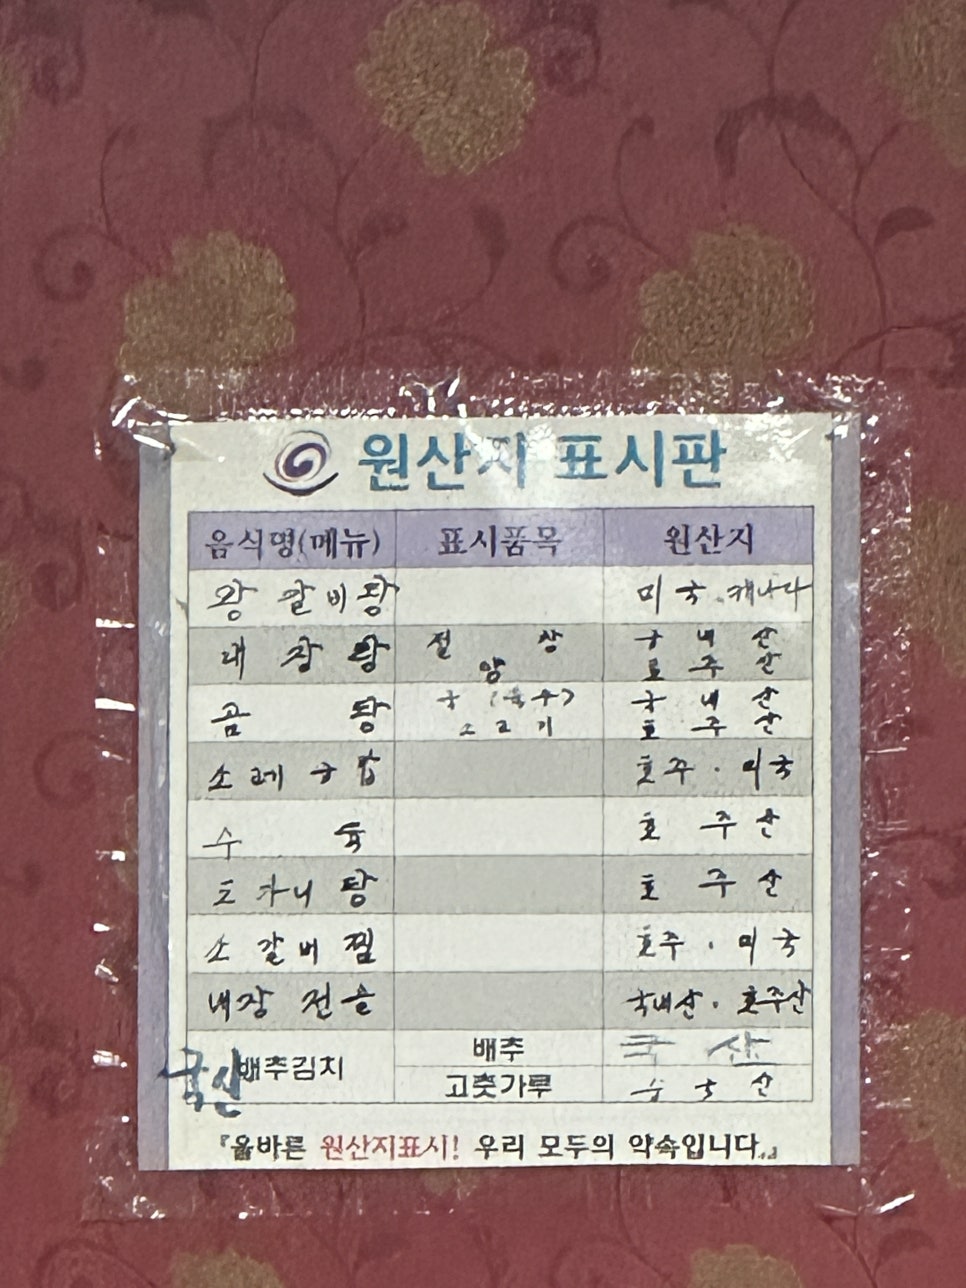 원산지 표시판
음식명(메뉴) 표시품목 원산지
왕 갈비탕 미국.캐나다
내장탕 절창 국내산
양 호주산
곰탕 국(육수) 국내산
소고기 호주산
소레국밥 호주·미국
수육 호주산
도가니탕 호주산
소갈비찜 호주·미국
내장전골 국내산·호주산
배추김치 배추 국산
국산 고춧가루 수국산
『올바른 원산지표시! 우리 모두의 약속입니다.』